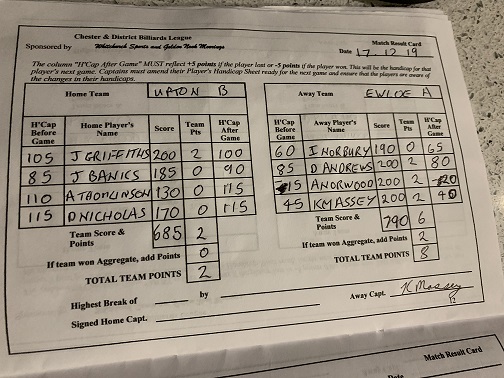 Chester & District Billiards League
Sponsored by Whitchurch Sports and Golden Nook Moorings
Match Result Card
Date 17.12.19
The column "H'Cap After Game" MUST reflect +5 points if the player lost or -5 points if the player won. This will be the handicap for that
player's next game. Captains must amend their Player's Handicap Sheet ready for the next game and ensure that the players are aware of
the changes in their handicaps.
Home Team UPTON B
H'Cap Before Game Home Player's Name Score Team Pts H'Cap After Game
105 J GRIFFITHS 200 2 100
85 J BANKS 185 0 90
110 A THOMLINSON 130 0 115
115 D NICHOLAS 170 0 115
Team Score & Points 685 2
If team won Aggregate, add Points 0
TOTAL TEAM POINTS 2
Away Team EWLOE A
H'Cap Before Game Away Player's Name Score Team Pts H'Cap After Game
60 I NORBURY 190 0 65
85 D ANDREWS 200 2 80
A NORWOOD 200 2
45 K MASSEY 200 2 40
Team Score & Points 790 6
If team won Aggregate, add Points 2
TOTAL TEAM POINTS 8
Highest Break of by
Signed Home Capt. Away Capt. K Massey
Match Result Card
Date